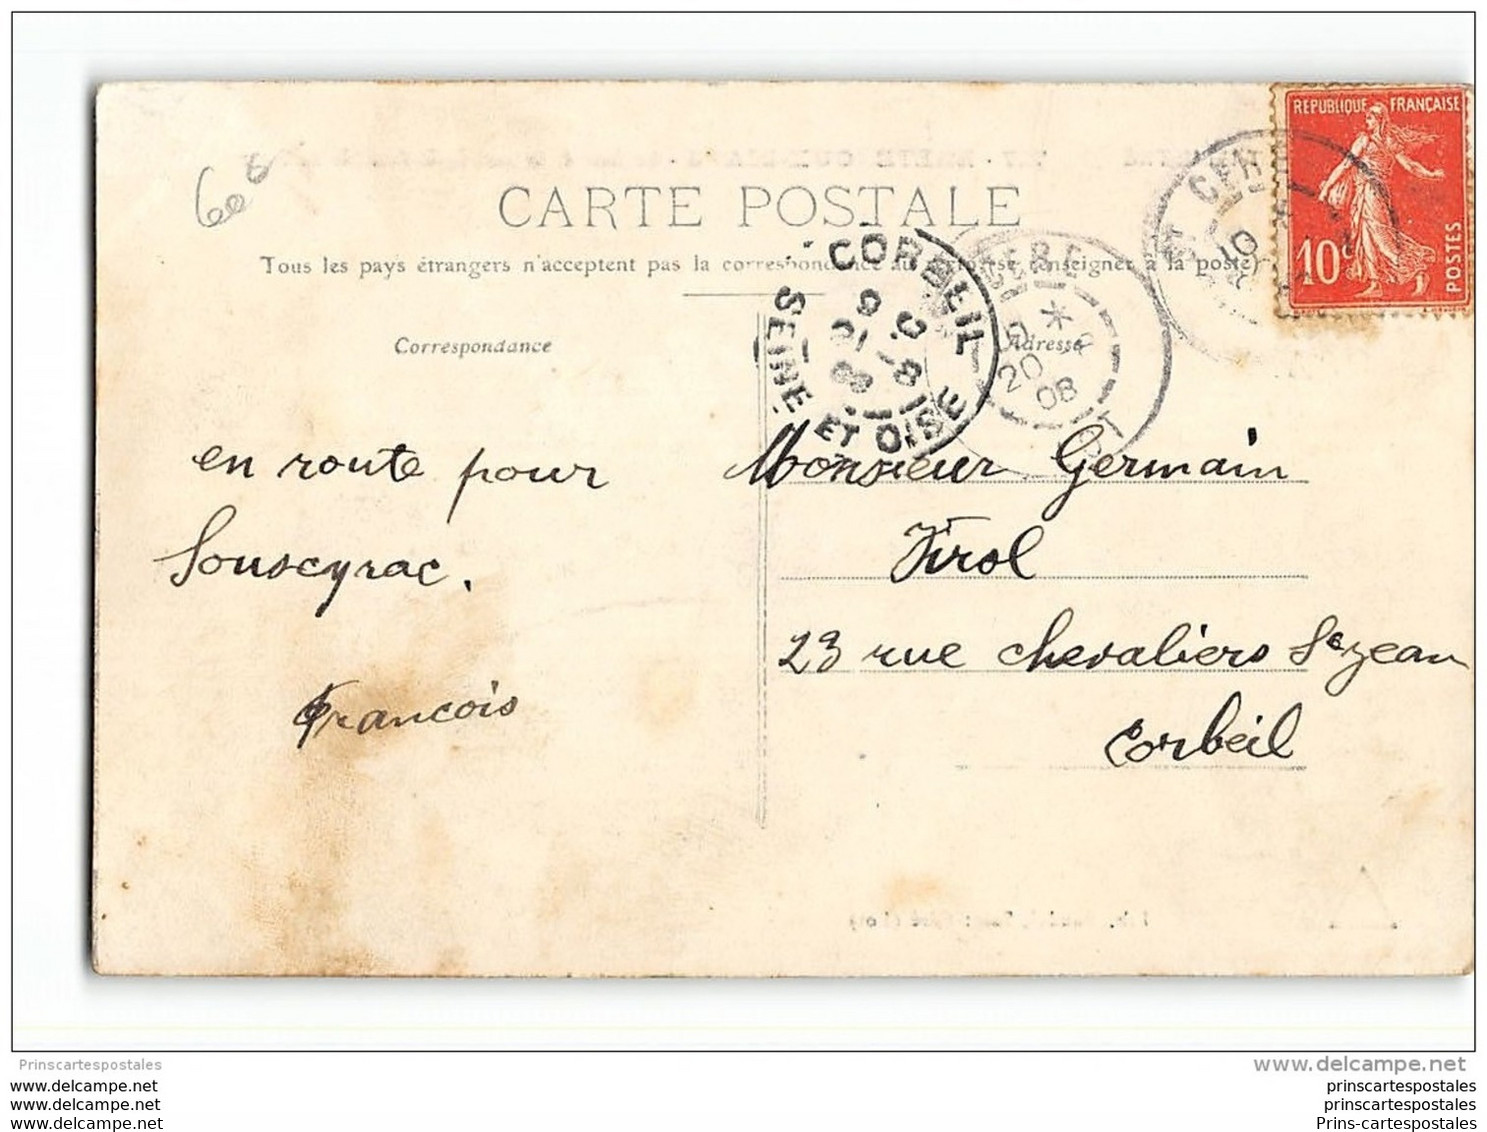 REPUBLIQUE FRANÇAISE
10c
POSTES
CARTE POSTALE
Tous les pays étrangers n'acceptent pas la correspondance au renseigner à la poste)
CORBEIL
SEINE ET OISE
20
08
Correspondance
Adresse
en route pour
Sousceyrac.
Francois
Monsieur Germain
Tirol
23 rue chevaliers St jean
Corbeil
Prinscartespostales
www.delcampe.net
www.delcampe.net
www.delcampe.net
www.delcampe.net
prinscartespostales
prinscartespostales
Prins-cartespostales